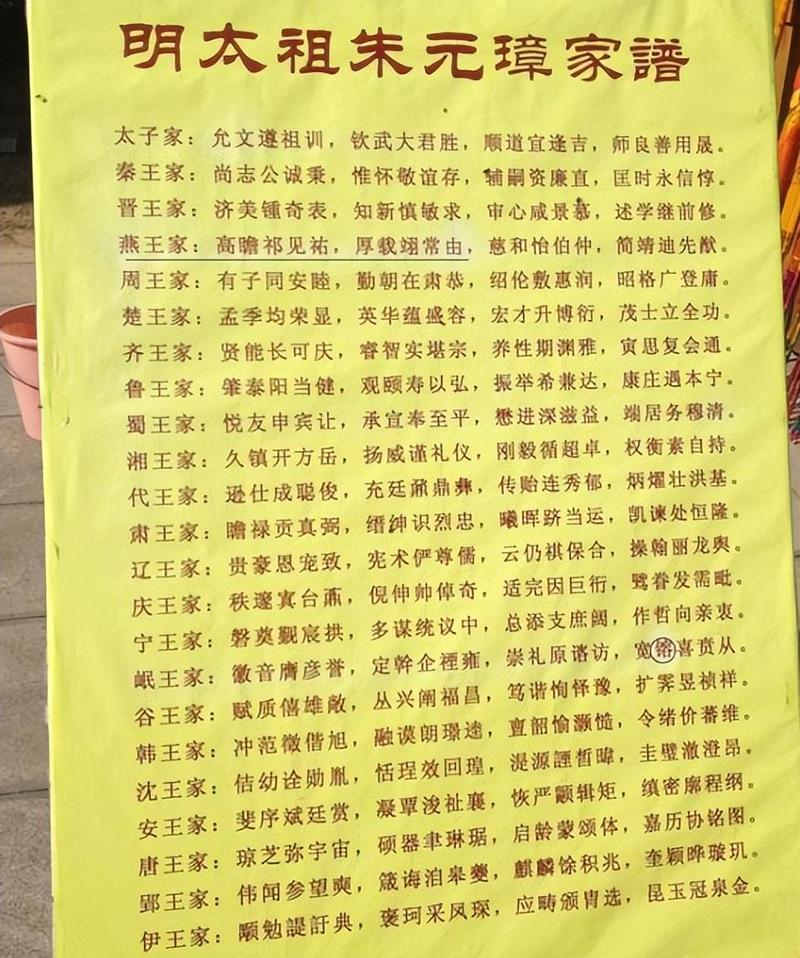 明太祖朱元璋家譜
太子家：允文遵祖训，钦武大君胜，顺道宜逢吉，师良善用晟。
秦王家：尚志公诚秉，惟怀敬谊存，辅嗣资廉直，匡时永信惇。
晋王家：济美锺奇表，知新慎敏求，审心咸景慕，述学继前修。
燕王家：高瞻祁见祐，厚载翊常由，慈和怡伯仲，简靖迪先猷。
周王家：有子同安睦，勤朝在肃恭，绍伦敷惠润，昭格广登庸。
楚王家：孟季均荣显，英华蕴盛容，宏才升博衍，茂士立全功。
齐王家：贤能长可庆，睿智实堪宗，养性期渊雅，寅思复会通。
鲁王家：肇泰阳当健，观颐寿以弘，振举希兼达，康庄遇本宁。
蜀王家：悦友申宾让，承宣奉至平，懋进深滋益，端居务穆清。
湘王家：久镇开方岳，扬威谨礼仪，刚毅循超卓，权衡素自持。
代王家：逊仕成聪俊，充廷鼐鼎彝，传贻连秀郁，炳燿壮洪基。
肃王家：瞻禄贡真弼，缙绅识烈忠，曦晖跻当运，凯谏处恒隆。
辽王家：贵豪恩宠致，宪术俨尊儒，云仍祺保合，操翰丽龙舆。
庆王家：秩邃寘台鼒，倪伸帅倬奇，适完因巨衍，眷发需毗。
宁王家：磐奠觐宸拱，多谋统议中，总添支庶阔，作哲向亲衷。
岷王家：徽音膺彦誉，定幹企禋雍，崇礼原谘访，宽裕喜贲从。
谷王家：赋质僖雄敞，丛兴阐福昌，笃谐恂怿豫，扩霁昱祯祥。
韩王家：冲范徵偕旭，融谟朗璟逵，亶韶愉灏慥，令绪价蕃维。
沈王家：佶幼诠勋胤，恬珵效回瑝，湜源諲晢暐，圭璧澈澄昂。
安王家：斐序斌廷赏，凝覃浚祉襄，恢严颛辑矩，缜密廓程纲。
唐王家：琼芝弥宇宙，硕器聿琳琚，启龄蒙颂体，嘉历协铭图。
郢王家：伟闻参望奭，箴诲洎皋夔，麒麟馀积兆，奎颖晔璇玑。
伊王家：颙勉諟訏典，褒珂采凤琛，应畴颁胄选，昆玉冠泉金。